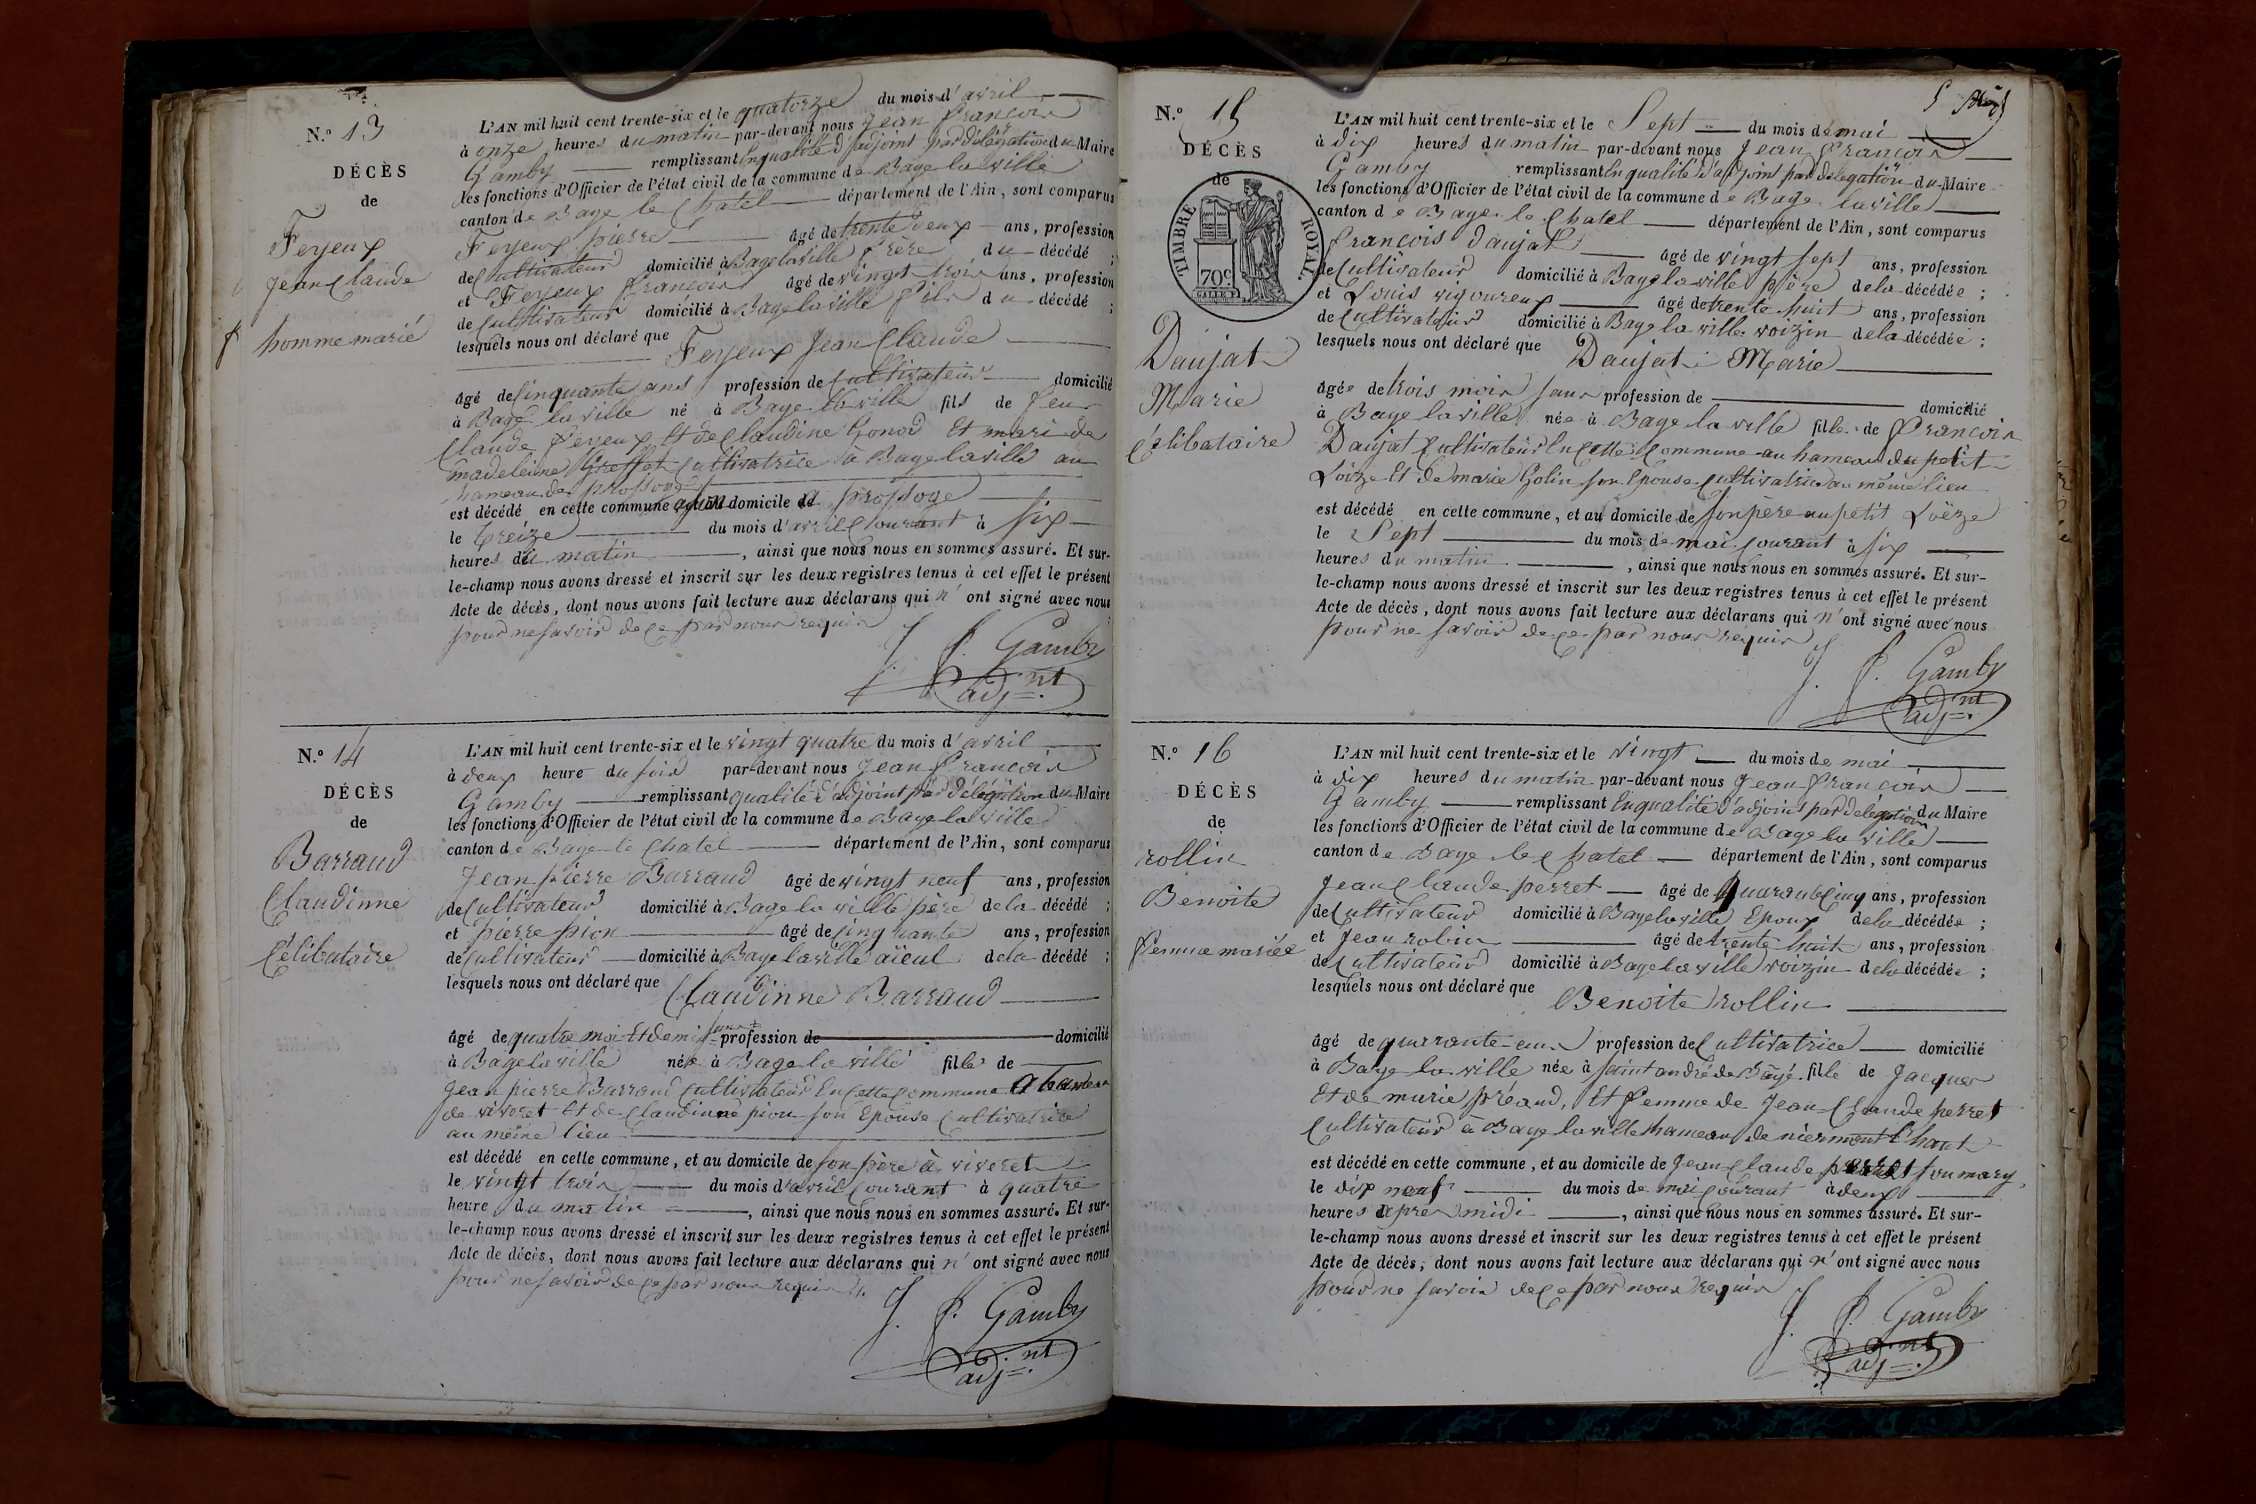 N.º 13
DÉCÈS
de
Feyeux
Jean Claude
homme marié
L'AN mil huit cent trente-six et le quatorze du mois d'avril
à onze heures du matin par-devant nous Jean François
Gamby remplissant En qualité d'adjoint par délégation du Maire
les fonctions d'Officier de l'état civil de la commune de Bagé la ville
canton de Bagé le Chatel département de l'Ain, sont comparus
Feyeux pierre âgé de trente deux ans, profession
de Cultivateur domicilié à Bagé la ville frère du décédé ;
et Feyeux françois âgé de vingt trois ans, profession
de Cultivateur domicilié à Bagé la ville fils du décédé ;
lesquels nous ont déclaré que Feyeux Jean Claude
âgé de Cinquante ans profession de Cultivateur domicilié
à Bagé la ville né à Bagé la ville fils de feu
Claude feyeux Et de Claudine Gonod Et mari de
madeleine Greffet Cultivatrice à Bagé la ville au
hameau de
est décédé en cette commune domicile
le treize du mois d'avril Courant à six
heures du matin, ainsi que nous nous en sommes assuré. Et sur-
le-champ nous avons dressé et inscrit sur les deux registres tenus à cet effet le présent
Acte de décès, dont nous avons fait lecture aux déclarans qui n'ont signé avec nous
pour ne savoir de ce par nous requis
J. F. Gamby
adj.nt
N.º 14
DÉCÈS
de
Barraud
Claudinne
Célibataire
L'AN mil huit cent trente-six et le vingt quatre du mois d'avril
à deux heure du soir par-devant nous Jean François
Gamby remplissant qualité d'adjoint par délégation du Maire
les fonctions d'Officier de l'état civil de la commune de Bagé la ville
canton de Bagé le Chatel département de l'Ain, sont comparus
Jean pierre Barraud âgé de vingt neuf ans, profession
de Cultivateur domicilié à Bagé la ville père de la décédé ;
et pierre pion âgé de Cinquante ans, profession
de Cultivateur domicilié à Bagé la ville aïeul de la décédé ;
lesquels nous ont déclaré que Claudinne Barraud
âgé de quatre moi Et demi sans profession de domicilié
à Bagé la ville née à Bagé la ville fille de
Jean pierre Barraud Cultivateur En cette commune
de viveret Et de Claudinne pion son Epouse Cultivatrice
au même lieu
est décédé en cette commune, et au domicile de son père à viveret
le vingt trois du mois d'avril Courant à quatre
heure du matin, ainsi que nous nous en sommes assuré. Et sur-
le-champ nous avons dressé et inscrit sur les deux registres tenus à cet effet le présent
Acte de décès, dont nous avons fait lecture aux déclarans qui n'ont signé avec nous
pour ne savoir de ce par nous requis
J. F. Gamby
adj.nt
5
N.º 15
DÉCÈS
de
TIMBRE ROYAL
70c
Daujat
Marie
Célibataire
L'AN mil huit cent trente-six et le Sept du mois de mai
à dix heures du matin par-devant nous Jean François
Gamby remplissant En qualité d'adjoint par délégation du Maire
les fonctions d'Officier de l'état civil de la commune de Bagé la ville
canton de Bagé le Chatel département de l'Ain, sont comparus
François Daujat âgé de vingt sept ans, profession
de Cultivateur domicilié à Bagé la ville père de la décédée ;
et Louis vigoureux âgé de trente huit ans, profession
de Cultivateur domicilié à Bagé la ville voizin de la décédée ;
lesquels nous ont déclaré que Daujat Marie
âgée de trois mois sans profession de domicilié
à Bagé la ville née à Bagé la ville fille de François
Daujat Cultivateur En Cette Commune au hameau du petit
Loëze Et de marie Golin son Epouse Cultivatrice au même lieu
est décédé en cette commune, et au domicile de son père au petit Loëze
le Sept du mois de mai Courant à six
heures du matin, ainsi que nous nous en sommes assuré. Et sur-
le-champ nous avons dressé et inscrit sur les deux registres tenus à cet effet le présent
Acte de décès, dont nous avons fait lecture aux déclarans qui n'ont signé avec nous
pour ne savoir de ce par nous requis
J. F. Gamby
adj.nt
N.º 16
DÉCÈS
de
rollin
Benoite
femme mariée
L'AN mil huit cent trente-six et le vingt du mois de mai
à dix heures du matin par-devant nous Jean François
Gamby remplissant En qualité d'adjoint par délégation du Maire
les fonctions d'Officier de l'état civil de la commune de Bagé la ville
canton de Bagé le Chatel département de l'Ain, sont comparus
Jean Claude perret âgé de quarante Cinq ans, profession
de Cultivateur domicilié à Bagé la ville Epoux de la décédée ;
et Jean robin âgé de trente huit ans, profession
de Cultivateur domicilié à Bagé la ville voizin de la décédée ;
lesquels nous ont déclaré que Benoite rollin
âgé de quarante profession de Cultivatrice domicilié
à Bagé la ville née à saint andré de Bagé fille de Jacques
Et de marie préaud, Et femme de Jean Claude perret
Cultivateur à Bagé la ville hameau de
est décédé en cette commune, et au domicile de Jean Claude perret son mary,
le dix neuf du mois de mai Courant à deux
heures après midi, ainsi que nous nous en sommes assuré. Et sur-
le-champ nous avons dressé et inscrit sur les deux registres tenus à cet effet le présent
Acte de décès, dont nous avons fait lecture aux déclarans qui n'ont signé avec nous
pour ne savoir de ce par nous requis
J. F. Gamby
adj.nt